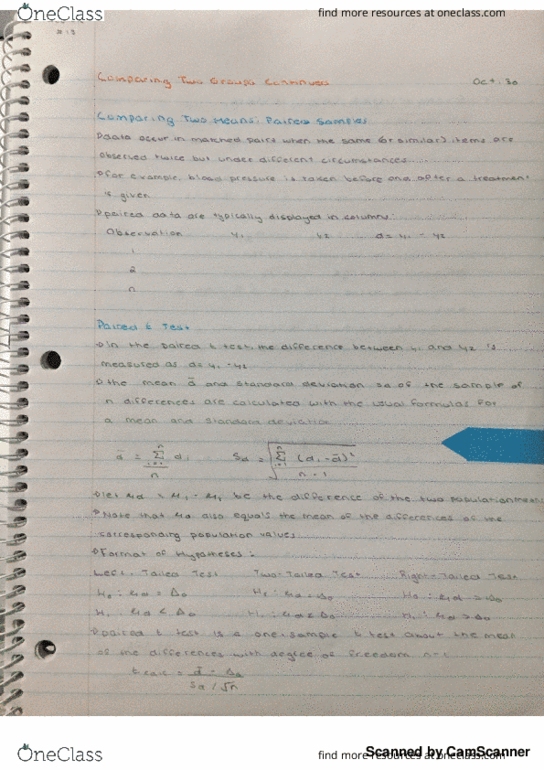 OneClass
find more resources at oneclass.com
Comparing Two Groups Continued Oct. 30
Comparing Two Means: Paired Samples
data occur in matched pairs when the same (or similar) items are
observed twice but under different circumstances.
for example, blood pressure is taken before and after a treatment
is given
paired data are typically displayed in columns:
Observation y₁ y₂ d = y₁ - y₂
1
2
n
Paired t Test
in the paired t test, the difference between y₁ and y₂ is
measured as d = y₁ - y₂
the mean d̄ and standard deviation sd of the sample of
n differences are calculated with the usual formulas for
a mean and standard deviation
d̄ = Σ dᵢ / n   Sd = √( Σ (dᵢ - d̄)² / n - 1 )
let μd = μ₁ - μ₂ be the difference of the two population means
Note that μd also equals the mean of the differences of the
corresponding population values
Format of Hypotheses:
Left-Tailed Test Two-Tailed Test Right-Tailed Test
H₀: μd = Δ₀ = Δ₀ H₀: μd = Δ₀
H₁: μd < Δ₀ H₁: μd > Δ₀
paired t test is a one-sample t test about the mean
of the differences with degree of freedom n-1
t calc = d̄ - Δ₀ / Sd / √n
Scanned by CamScanner
OneClass
find more resources at oneclass.com